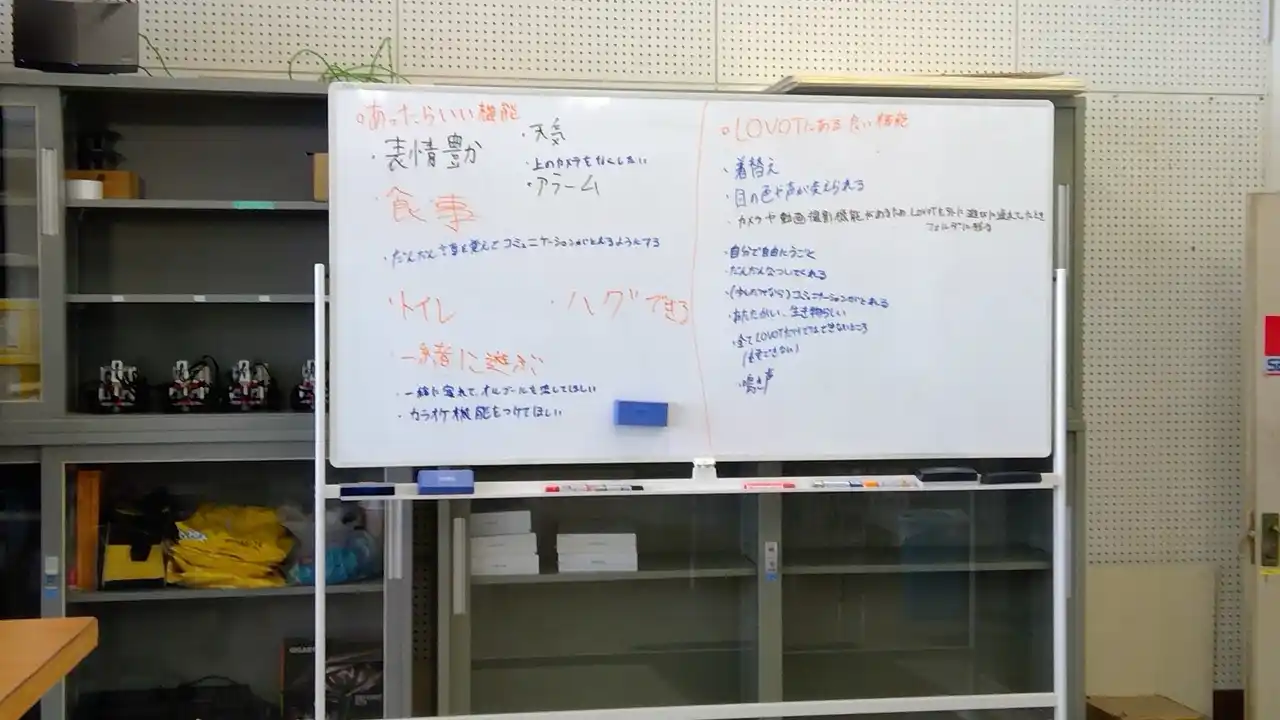 ○あったらいい機能
・表情豊か
・天気
・上のカメラをなくしたい
・アラーム
・食事
・だんだん言葉を覚えてコミュニケーションがとれるようにする
・トイレ
・ハグできる
・一緒に遊ぶ
・一緒に寝れて、オルゴールを流してほしい
・カラオケ機能をつけてほしい
○LOVOTにある良い機能
・着替え
・目の色や声が変えられる
・カメラや動画撮影機能があるため LOVOTと外に遊びに連れてったとき
フォルダに残る
・自分で自由にうごく
・だんだんなついてくれる
・コミュニケーションがとれる
・あたたかい、生き物らしい
・全てLOVOTだけではできないところ
・鳴き声